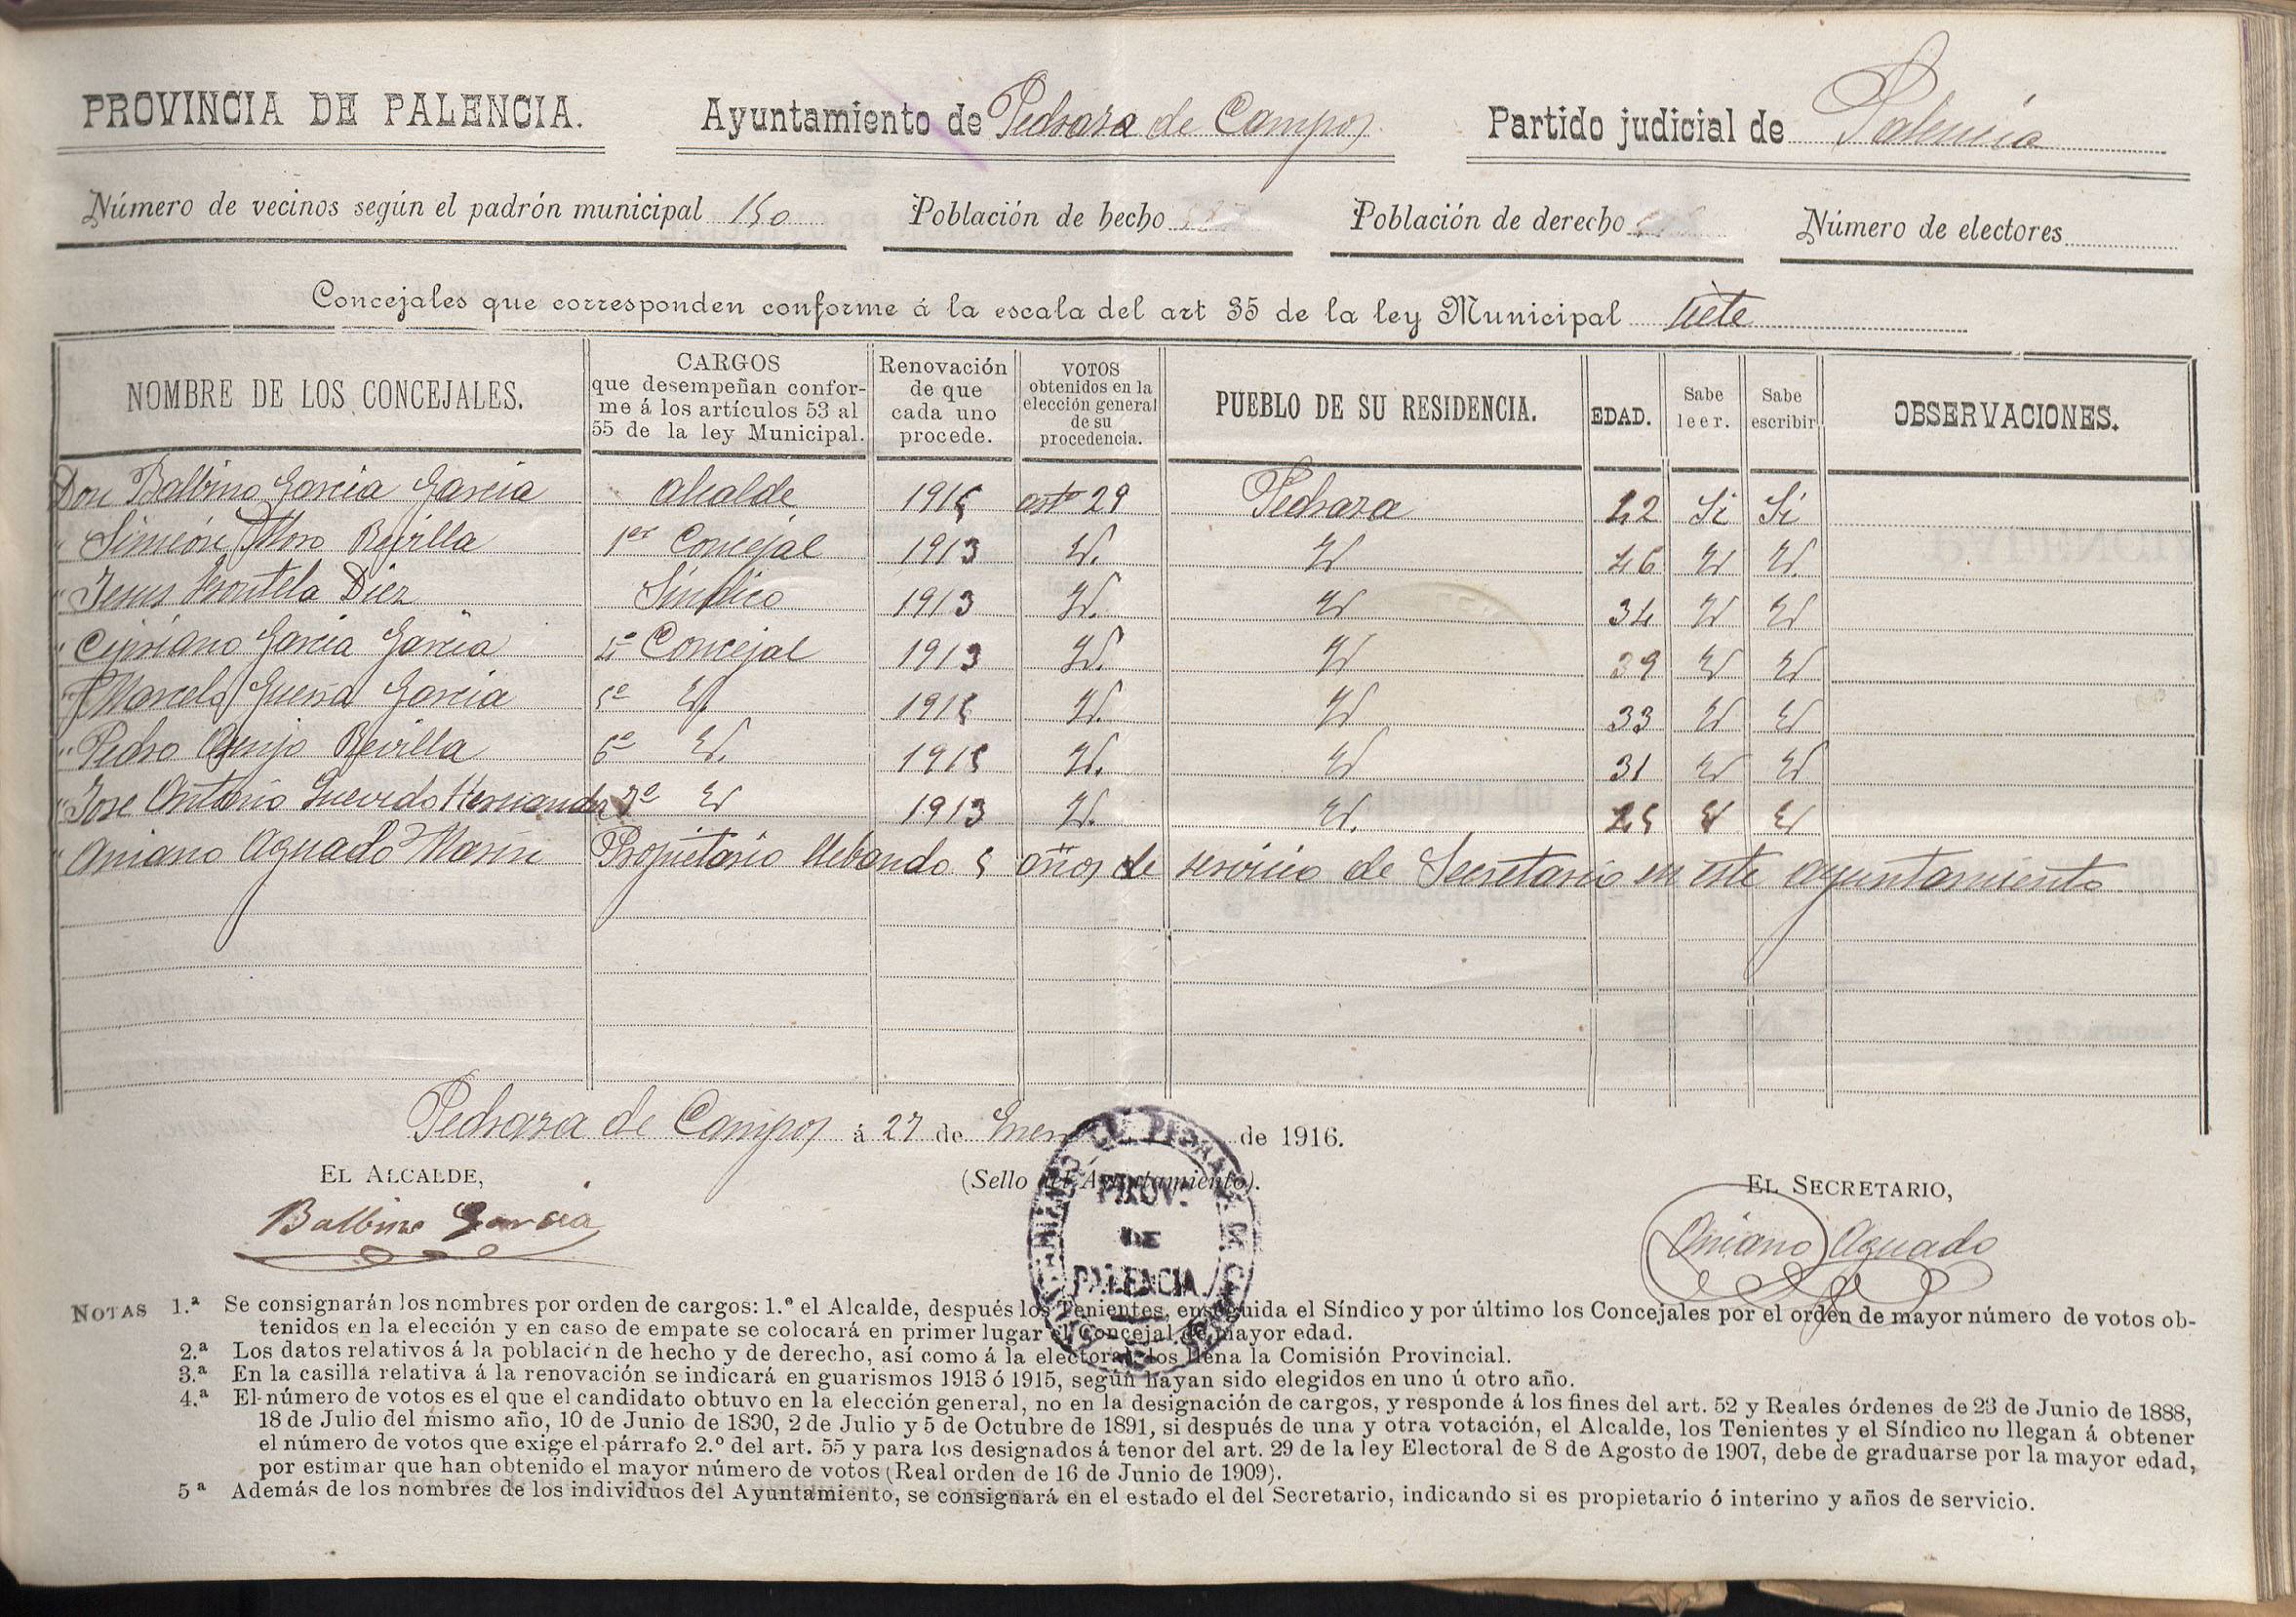 PROVINCIA DE PALENCIA. Ayuntamiento de Pedraza de Campos Partido judicial de Palencia
Número de vecinos según el padrón municipal 150 Población de hecho Población de derecho Número de electores
Concejales que corresponden conforme á la escala del art 35 de la ley Municipal siete
NOMBRE DE LOS CONCEJALES. CARGOS que desempeñan conforme á los artículos 53 al 55 de la ley Municipal. Renovación de que cada uno procede. VOTOS obtenidos en la elección general de su procedencia. PUEBLO DE SU RESIDENCIA. EDAD. Sabe leer. Sabe escribir OBSERVACIONES.
Don Balbino Garcia Garcia Alcalde 1915 artº 29 Pedraza 42 Si Si
" Simeón Moro Revilla 1er Concejal 1913 Id. Id 46 Id Id.
" Jesus Diez Sindico 1913 Id. Id 34 Id Id
" Cipriano Garcia Garcia 4º Concejal 1913 Id. Id 39 Id Id
" Marcelo Garcia 5º Id. 1915 Id. Id 33 Id Id
" Pedro Asenjo Revilla 6º Id. 1915 Id. Id 31 Id Id
" Jose Antonio Hernandez 3º Id 1913 Id. Id. Id Id
" Aniano Aguado Marin Propietario llebando 5 años de servicio de Secretario en este ayuntamiento
Pedraza de Campos á 27 de Enero de 1916.
EL ALCALDE, (Sello del Ayuntamiento). EL SECRETARIO,
Balbino Garcia Aniano Aguado
PROV.
DE
PALENCIA
NOTAS 1.ª Se consignarán los nombres por orden de cargos: 1.º el Alcalde, después los Tenientes, enseguida el Síndico y por último los Concejales por el orden de mayor número de votos ob-
tenidos en la elección y en caso de empate se colocará en primer lugar el Concejal de mayor edad.
2.ª Los datos relativos á la población de hecho y de derecho, así como á la electoral los llena la Comisión Provincial.
3.ª En la casilla relativa á la renovación se indicará en guarismos 1913 ó 1915, según hayan sido elegidos en uno ú otro año.
4.ª El número de votos es el que el candidato obtuvo en la elección general, no en la designación de cargos, y responde á los fines del art. 52 y Reales órdenes de 23 de Junio de 1888,
18 de Julio del mismo año, 10 de Junio de 1890, 2 de Julio y 5 de Octubre de 1891, si después de una y otra votación, el Alcalde, los Tenientes y el Síndico no llegan á obtener
el número de votos que exige el párrafo 2.º del art. 55 y para los designados á tenor del art. 29 de la ley Electoral de 8 de Agosto de 1907, debe de graduarse por la mayor edad,
por estimar que han obtenido el mayor número de votos (Real orden de 16 de Junio de 1909).
5ª Además de los nombres de los individuos del Ayuntamiento, se consignará en el estado el del Secretario, indicando si es propietario ó interino y años de servicio.